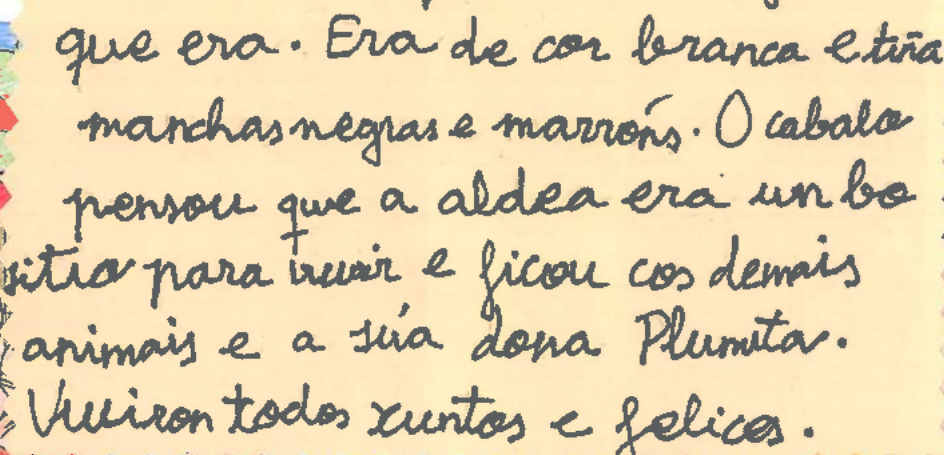 que era. Era de cor branca e tiña
manchas negras e marróns. O cabalo
pensou que a aldea era un bo
sitio para vivir e ficou cos demais
animais e a súa dona Plumita.
Viviron todos xuntos e felices.